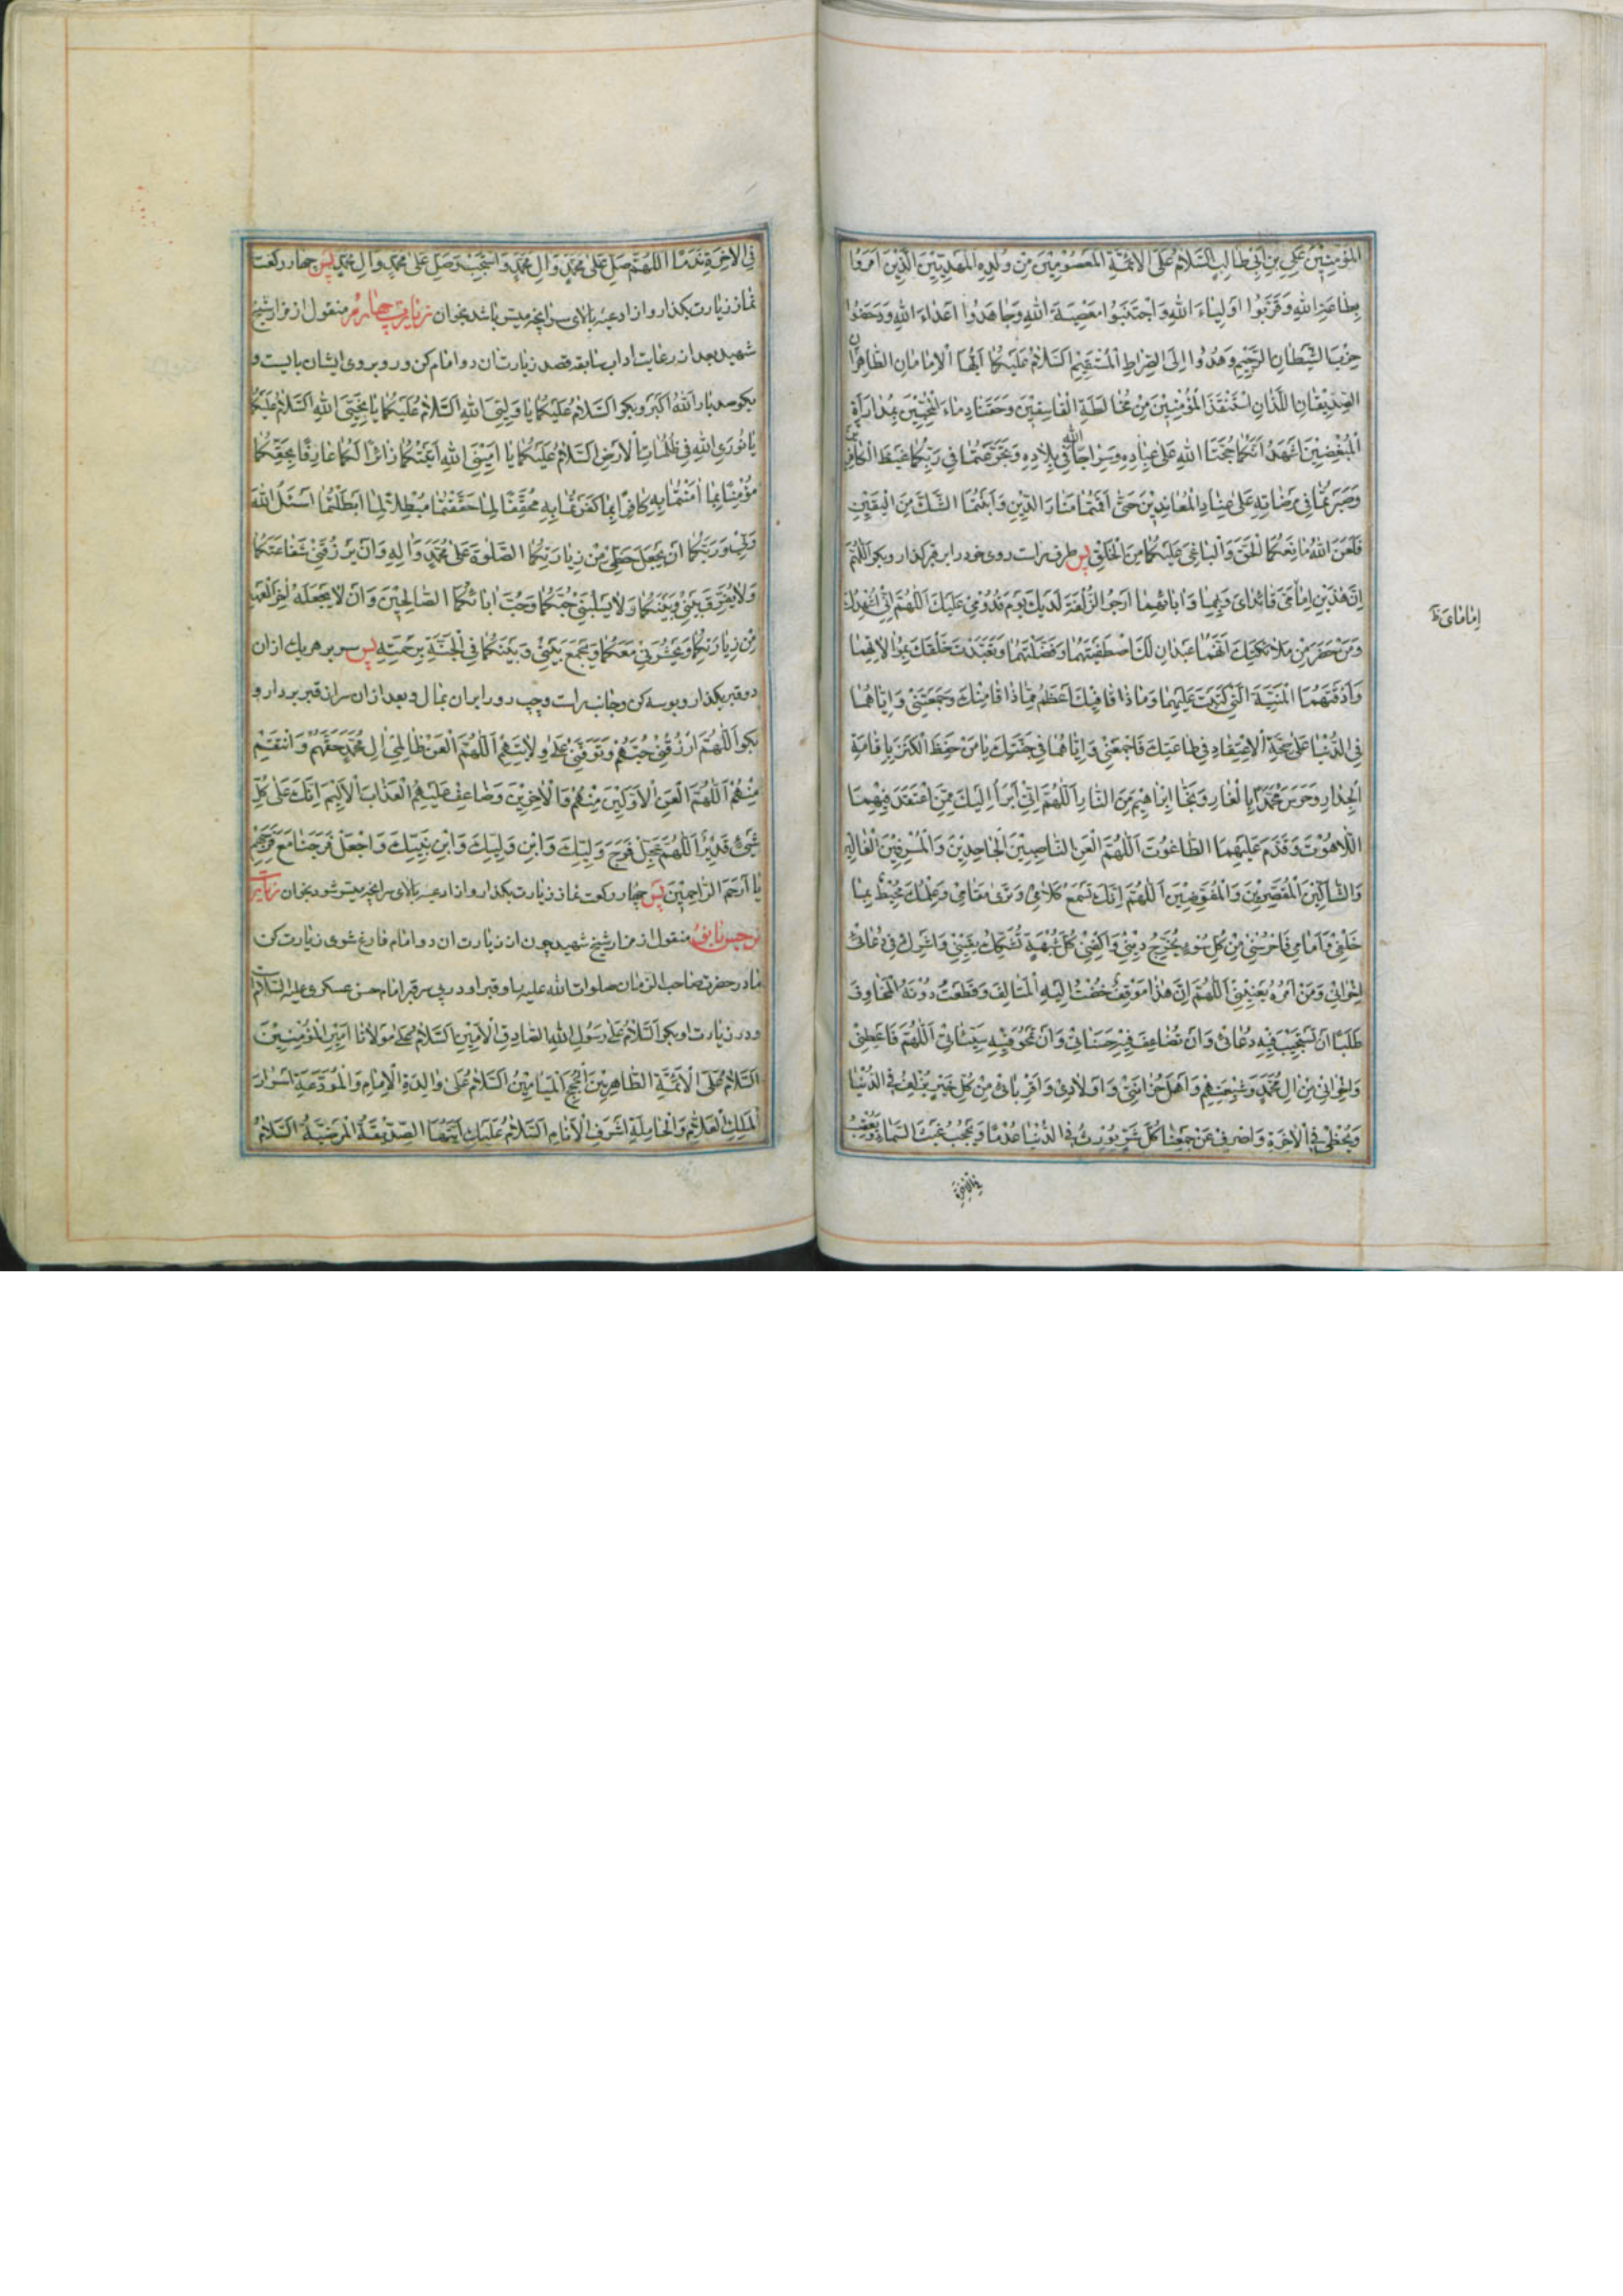 المؤمنين علي بن أبي طالب السلام على الائمة المعصومين من ولده المهديين الذين امروا
بطاعة الله وقربوا اولياء الله واجتنبوا معصية الله وجاهدوا اعداء الله ودحضوا
حزب الشيطان الرجيم وهدوا الى الصراط المستقيم السلام عليكما ايها الامامان الطاهران
الصديقان اللذان استنقذا المؤمنين من مخالطة الفاسقين وحقنا دماء المحبين بمداراة
المبغضين اشهد انكما حجتا الله على عباده وسراجا الله في بلاده وتجرعتما في ربكما غيظ الكافرين
وصبرتما في مرضاته على عناد المعاندين حتى اقمتما منار الدين وابنتما الشك من اليقين
فلعن الله مانعكما الحق والباغي عليكما من الخلق پس طرف راست روى خود را بر قبر كذار وبكو اللهم
ان هذين امامي قائداي وبهما وابائهما ارجو الزلفة لديك يوم قدومي عليك اللهم اني اشهدك
ومن حضر من ملائكتك انهما عبدان لك اصطفيتهما وفضلتهما وتعبدت خلقك بموالاتهما
واذقتهما المنية التي كتبت عليهما وما ذاقا فيك اعظم مما ذاقا منك وجمعتني واياهما
في الدنيا على صحة الاعتقاد في طاعتك فاجمعني واياهما في جنتك يا من حفظ الكنز باقامة
الجدار وحرس محمدا بالغار ونجا ابراهيم من النار اللهم اني ابرأ اليك ممن اعتقد فيهما
اللاهوت وقدم عليهما الطاغوت اللهم العن الناصبين الجاحدين والمسرفين الغالين
والشاكين المقصرين والمفوضين اللهم انك تسمع كلامي وترى مقامي وعلمك محيط بما
خلفي وامامي فاحرسني من كل سوء يخرج ديني واكفني كل شبهة تشكك يقيني واشرك في دعائي
اخواني ومن امره يعنيني اللهم ان هذا موقف خضت اليه المتالف وقطعت دونه المخاوف
طلبا ان تستجيب فيه دعائي وان تضاعف فيه حسناتي وان تمحو فيه سيئاتي اللهم فاعطني
واخواني من ال محمد وشيعتهم واهل حزانتي واولادي واقربائي من كل خير يزلف في الدنيا
ويحظي في الاخرة واصرف عن جمعنا كل شر يورث في الدنيا عدما ويحجب غيث السماء ويعقب
في الاخرة
امامای ظ
في الاخرة ندما اللهم صل على محمد وال محمد واستجب وصل على محمد وال محمد پس چهار ركعت
نماز زيارت بكذار واز ادعيه بالاى سر انچه ميسر باشد بخوان زيارت چهارم منقول از مزار شيخ
شهيد بعد از رعايت اداب سابقه قصد زيارت ان دو امام كن ورو بروى ايشان بايست و
بكو سه بار الله اكبر وبكو السلام عليكما يا وليي الله السلام عليكما يا حجتي الله السلام عليكما
يا نوري الله في ظلمات الارض السلام عليكما يا اميني الله اتيتكما زائرا لكما عارفا بحقكما
مؤمنا بما امنتما به كافرا بما كفرتما به محققا لما حققتما مبطلا لما ابطلتما اسئل الله
ربي وربكما ان يجعل حظي من زيارتكما الصلوة على محمد واله وان يرزقني شفاعتكما
ولا يفرق بيني وبينكما ولا يسلبني حبكما وحب ابائكما الصالحين وان لا يجعله اخر العهد
من زيارتكما ويحشرني معكما ويجمع بيني وبينكما في الجنة برحمته پس سر بر هر يك از ان
دو قبر بكذار وبوسه كن وجانب راست وچپ رو را بر ان بمال وبعد از ان سر از قبر بردار و
بكو اللهم ارزقني حبهم وتوفني على ولايتهم اللهم العن ظالمي ال محمد حقهم وانتقم
منهم اللهم العن الاولين منهم والاخرين وضاعف عليهم العذاب الاليم انك على كل
شيء قدير اللهم عجل فرج وليك وابن وليك وابن نبيك واجعل فرجنا مع فرجهم
يا ارحم الراحمين پس چهار ركعت نماز زيارت بكذار واز ادعيه بالاى سر انچه ميسر شود بخوان زيارت
نرجس خاتون منقول از مزار شيخ شهيد چون از زيارت ان دو امام فارغ شوى زيارت كن
مادر حضرت صاحب الزمان صلوات الله عليه را وقبر او در پى سر قبر امام حسن عسكرى عليه السلام
ودر زيارت او بكو السلام على رسول الله الصادق الامين السلام على مولانا امير المؤمنين
السلام على الائمة الطاهرين الحجج الميامين السلام على والدة الامام والمودعة اسرار
الملك العلام والحاملة اشرف الانام السلام عليك ايتها الصديقة المرضية السلام